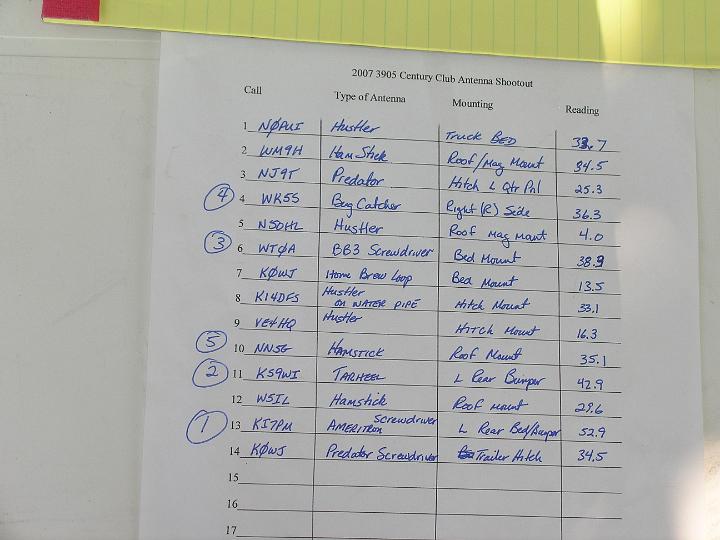 2007 3905 Century Club Antenna Shootout
Call Type of Antenna Mounting Reading
1 NØAUI Hustler Truck BED 33.7
2 WM9H Ham Stick Roof/Mag Mount 34.5
3 NJ9T Predator Hitch L Qtr Pnl 25.3
④ 4 WK5S Bug Catcher Right (R) Side 36.3
5 N5OHL Hustler Roof Mag Mount 4.0
③ 6 WTØA BB3 Screwdriver Bed Mount 38.9
7 KØWJ Home Brew Loop Bed Mount 13.5
8 KI4DFS Hustler on WATER PIPE Hitch Mount 33.1
9 VE4HQ Hustler HITCH Mount 16.3
⑤ 10 NN5G HAMSTICK Roof Mount 35.1
② 11 KS9WI TARHEEL L Rear Bumper 42.9
12 W5IL Hamstick Roof Mount 29.6
① 13 KI7PM AMERITRON Screwdriver L Rear Bed/Bumper 52.9
14 KØWJ Predator Screwdriver Trailer Hitch 34.5
15
16
17